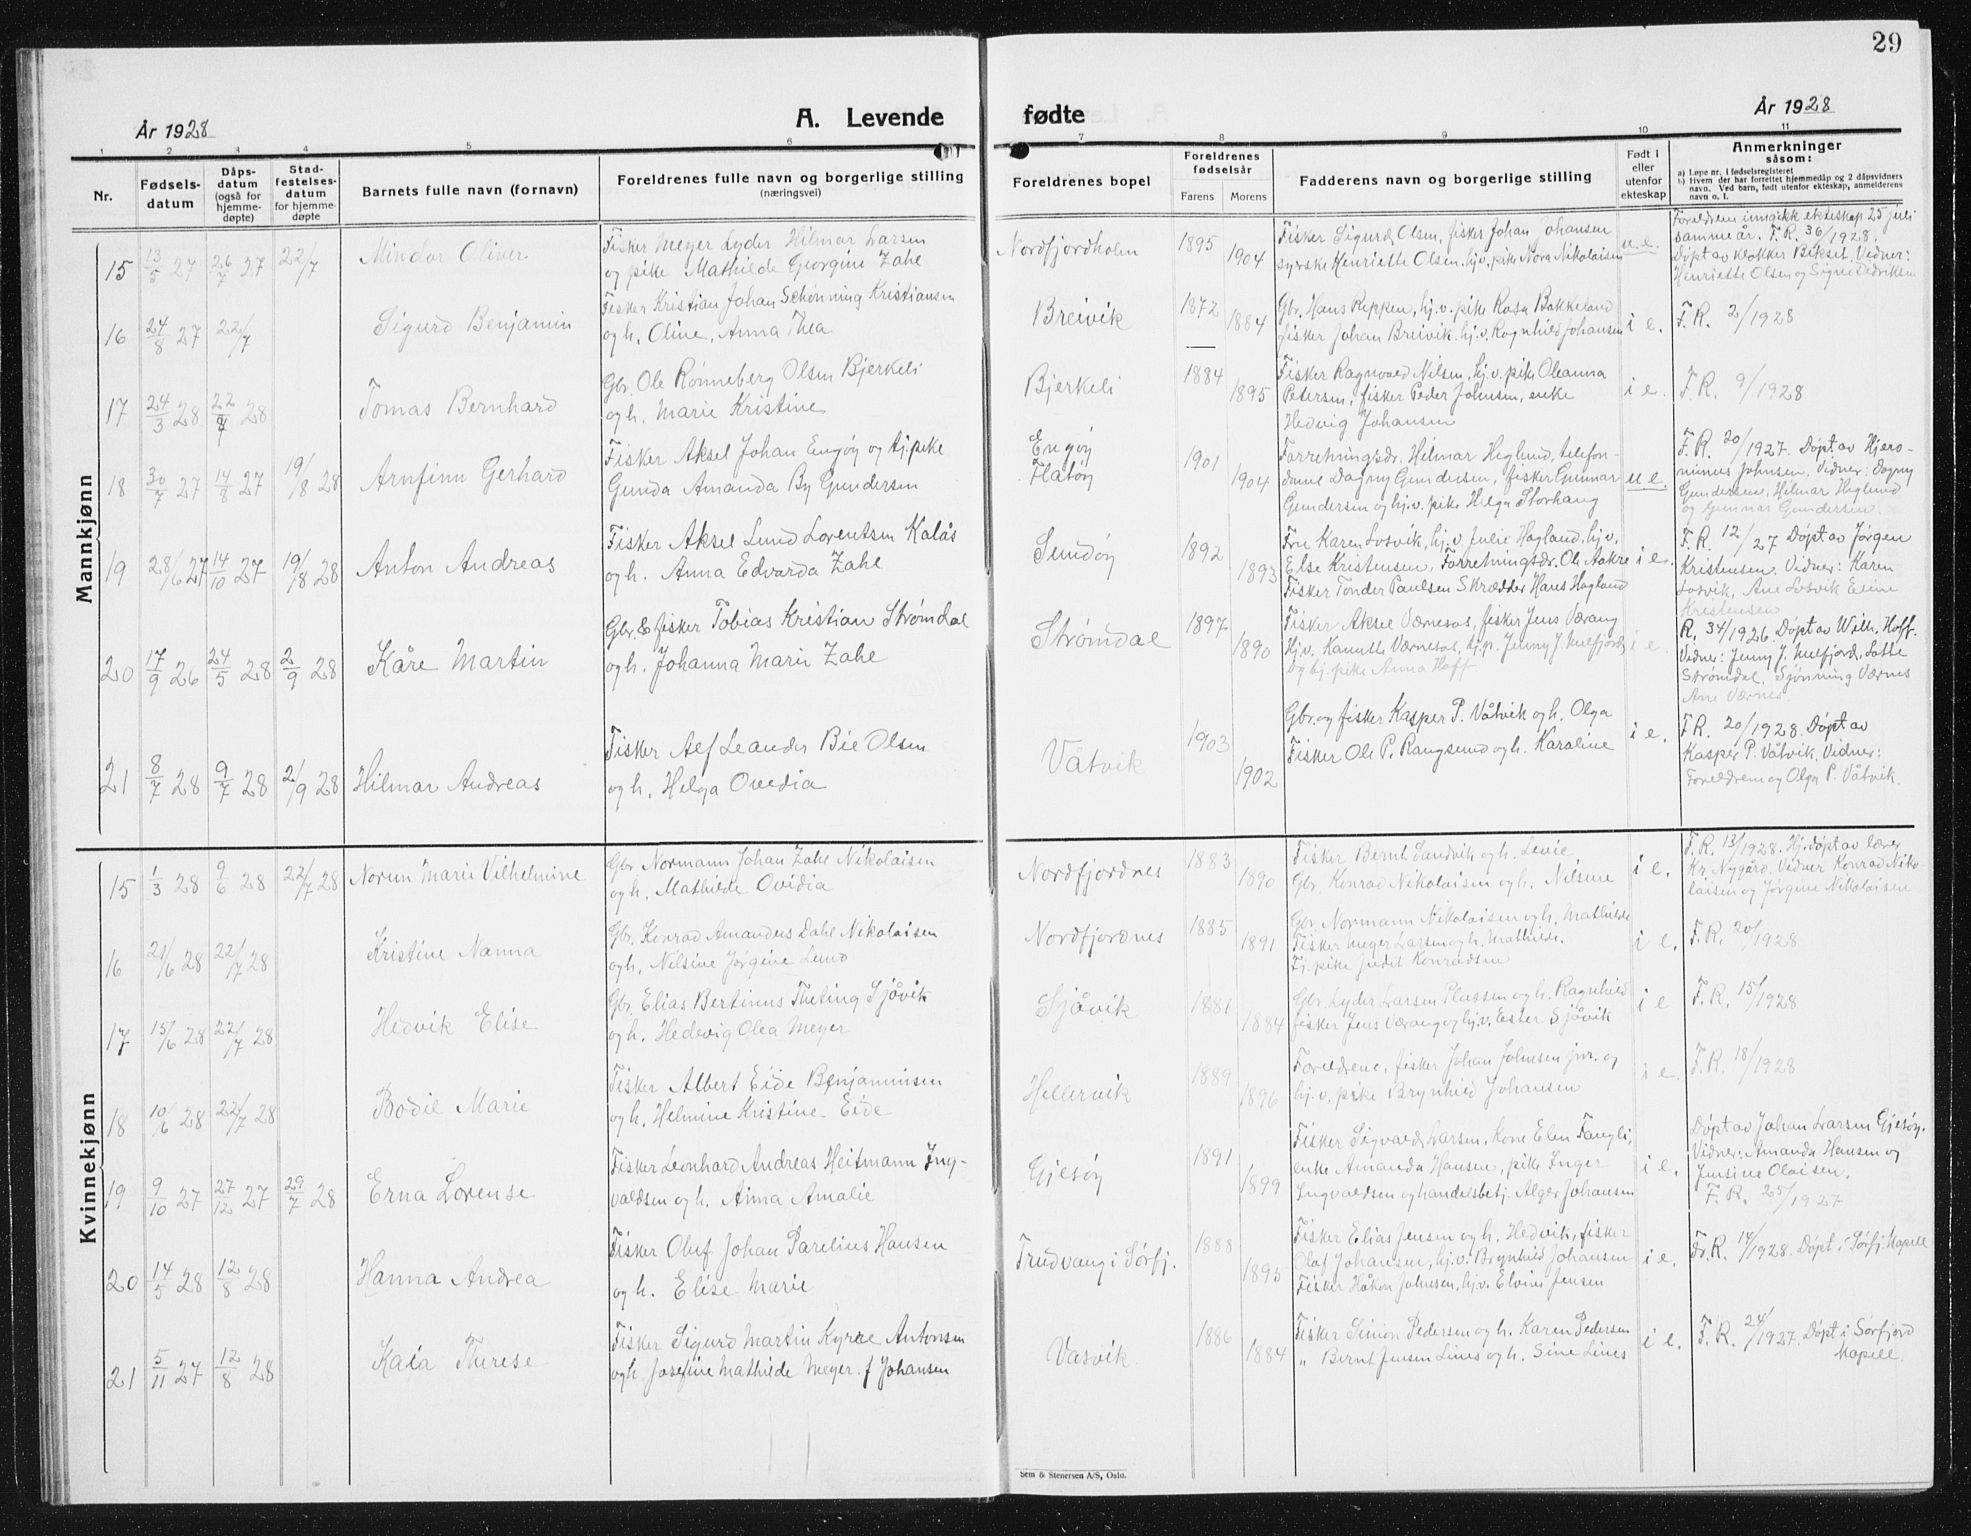 29
År 1928
A. Levende fødte
År 1928
1 2 3 4 5 6 7 8 9 10 11
Nr.
Fødselsdatum
Dåpsdatum (også for hjemmedøpte)
Stadfestelsesdatum for hjemmedøpte
Barnets fulle navn (fornavn)
Foreldrenes fulle navn og borgerlige stilling
(næringsvei)
Foreldrenes bopel
Foreldrenes fødselsår
Farens Morens
Fadderens navn og borgerlige stilling
Født i eller utenfor ekteskap
Anmerkninger
såsom:
a) Løpe nr. i fødselsregisteret
b) Hvem der har forrettet hjemmedåp og 2 dåpsvidners
navn. Ved barn, født utenfor ekteskap, anmelderens
navn o. l.
Mannkjønn
15 13/5 27 26/7 27 22/7 Mindor Oliver
Fisker Meyer Lyder Hilmar Larsen
og pike Mathilde Georgine Zahl
Nordfjordholm 1895 1904
Fisker Sigurd Olsen, fisker Johan Johansen
syerske Henriette Olsen, hj.v. pike Nora Nikolaisen
u.e.
Foreldrene inngikk ekteskap 25 juli
samme år. F.R. 36/1928.
Døpt av klokker Bikset. Vidner:
Henriette Olsen og Signe Dedriksen
16 24/8 27 22/7 Sigurd Benjamin
Fisker Kristian Johan Schønning Kristiansen
og h. Oline, Anna Thea
Breivik 1872 1884
Gbr. Hans Reppen, hj.v. pike Rosa Bakkelund
fisker Johan Breivik. hj.v. Ragnhild Johansen
i e.
F.R. 2/1928
17 24/3 28 22/7 28 Tomas Bernhard
Gbr. Ole Rønneberg Olsen Bjerkeli
og h. Marie Kristine
Bjerkeli 1884 1895
Fisker Ragnvald Nilsen, hj.v. pike Oleanna
Petersen, fisker Peder Johnsen, enke
Hedvig Johansen
i e.
F.R. 9/1928
18 30/7 27 14/8 27 19/8 28 Arnfinn Gerhard
Fisker Aksel Johan Engøy og tj. pike
Gunda Amanda By Gundersen
Engøy
Flatøy
1901 1904
Forretningsdr. Hilmar Heglund, telefon-
dame Dagny Gundersen, fisker Gunnar
Gundersen og hj.v. pike Helga Storhaug
u.e.
F.R. 20/1927. Døpt av Hjero-
nimus Johnsen. Vidner: Dagny
Gundersen, Hilmar Heglund
og Gunnar Gundersen.
19 28/6 27 14/10 27 19/8 28 Anton Andreas
Fisker Aksel Lund Lorentsen Kalås
og h. Anna Edvarda Zahl
Sundøy 1892 1893
Fru Karen Losvik, hj.v. Julie Hagland, hj.v.
Else Kristensen, Forretningsdr. Ole Aakre
Fisker Tønder Paulsen Skrædder Hans Hagland
i e.
F.R. 12/27 Døpt av Jørgen
Kristensen. Vidner: Karen
Losvik, Ane Losvik Eline
Kristensen
20 17/9 26 24/5 28 2/9 28 Kåre Martin
Gbr. & fisker Tobias Kristian Strømdal
og h. Johanna Marie Zahl
Strømdal 1897 1890
Fisker Aksel Værnesos, fisker Jens Værang
Hj.v. Kamilla Værnesos, hj.p. Jenny J. Melfjord,
og hj. pike Anna Hoff
i e.
R. 34/1926. Døpt av Wilh. Hoff.
Vidner: Jenny J. Melfjord, Lotte
Strømdal, Sjønning Værnes
Ane Værnes.
21 8/7 28 9/7 28 2/9 28 Hilmar Andreas
Fisker Alf Leander Bie Olsen
og h. Helga Ovedia
Våtvik 1903 1902
Gbr. og fisker Kasper P. Våtvik og h. Olga
Fisker Ole P. Rangsund og h. Karoline
i e.
F.R. 20/1928. Døpt av
Kasper P. Våtvik. Vidner:
Foreldrene og Olga P. Våtvik.
Kvinnekjønn
15 1/3 28 9/6 28 22/7 28 Norun Marie Vilhelmine
Gbr. Normann Johan Zahl Nikolaisen
og h. Mathilde Ovidia
Nordfjordnes 1883 1890
Fisker Bernt Sandvik og h. Levie
Gbr. Konrad Nikolaisen og h. Nilsine
i e.
F.R. 13/1928. Hj.døpt av lærer
Kr. Nygård. Vidner Konrad Niko-
laisen og Jørgine Nikolaisen
16 21/6 28 22/7 28 Kristine Nanna
Gbr. Konrad Amandus Dahl Nikolaisen
og h. Nilsine Jørgine Lund
Nordfjordnes 1885 1891
Gbr. Normann Nikolaisen og h. Mathilde
Fisker Meyer Larsen og h. Mathilde.
Tj. pike Judit Konradsen
i e.
F.R. 20/1928
17 15/6 28 22/7 28 Hedvik Elise
Gbr. Elias Bertinus Theting Sjåvik
og h. Hedevig Olea Meyer
Sjåvik 1881 1884
Gbr. Lyder Larsen Plassen og h. Ragnhild
fisker Jens Værang og hj.v. Ester Sjåvik
i e
F.R. 15/1928
18 10/6 28 22/7 28 Bodil Marie
Fisker Albert Eide Benjaminsen
og h. Helmine Kristine Eide
Hellervik 1889 1896
Foreldrene, fisker Johan Johnsen jnr. og
hj.v. pike Brynhild Johansen
i e.
F.R. 18/1928
19 9/10 27 27/12 27 29/7 28 Erna Lorense
Fisker Leonhard Andreas Heitmann Ing-
valdsen og h. Anna Amalie
Gjesøy 1891 1899
Fisker Sigvald Larsen, Kone Elen Fagli,
enke Amanda Hansen, pike Inger
Ingvaldsen og handelsbetj. Alger Johansen
i e.
Døpt av Johan Larsen Gjesøy.
Vidner: Amanda Hansen og
Jensine Olaisen.
F.R. 25/1927
20 14/5 28 12/8 28 Hanna Andrea
Fisker Oluf Johan Parelius Hansen
og h. Elise Marie
Trudvang i Sørfj. 1888 1895
Fisker Elias Jensen og h. Hedvik, fisker
Olaf Johansen, hj.v. Brynhild Johansen
Fisker Håkon Johnsen, hj.v. Elvine Jensen
i e.
F.R. 14/1928. Døpt i Sørfj. Kapell
21 5/11 27 12/8 28 Kaia Therese
Fisker Sigurd Martin Kyrre Antonsen
og h. Josefine Mathilde Meyer f Johansen
Vasvik 1886 1884
Fisker Simon Pedersen og h. Karen Pedersen
" Bernt Jensen Lines og h. Sine Lines
i e.
F.R. 24/1927. Døpt i Sørfjord
Kapell.
Sem & Stenersen A/S, Oslo.